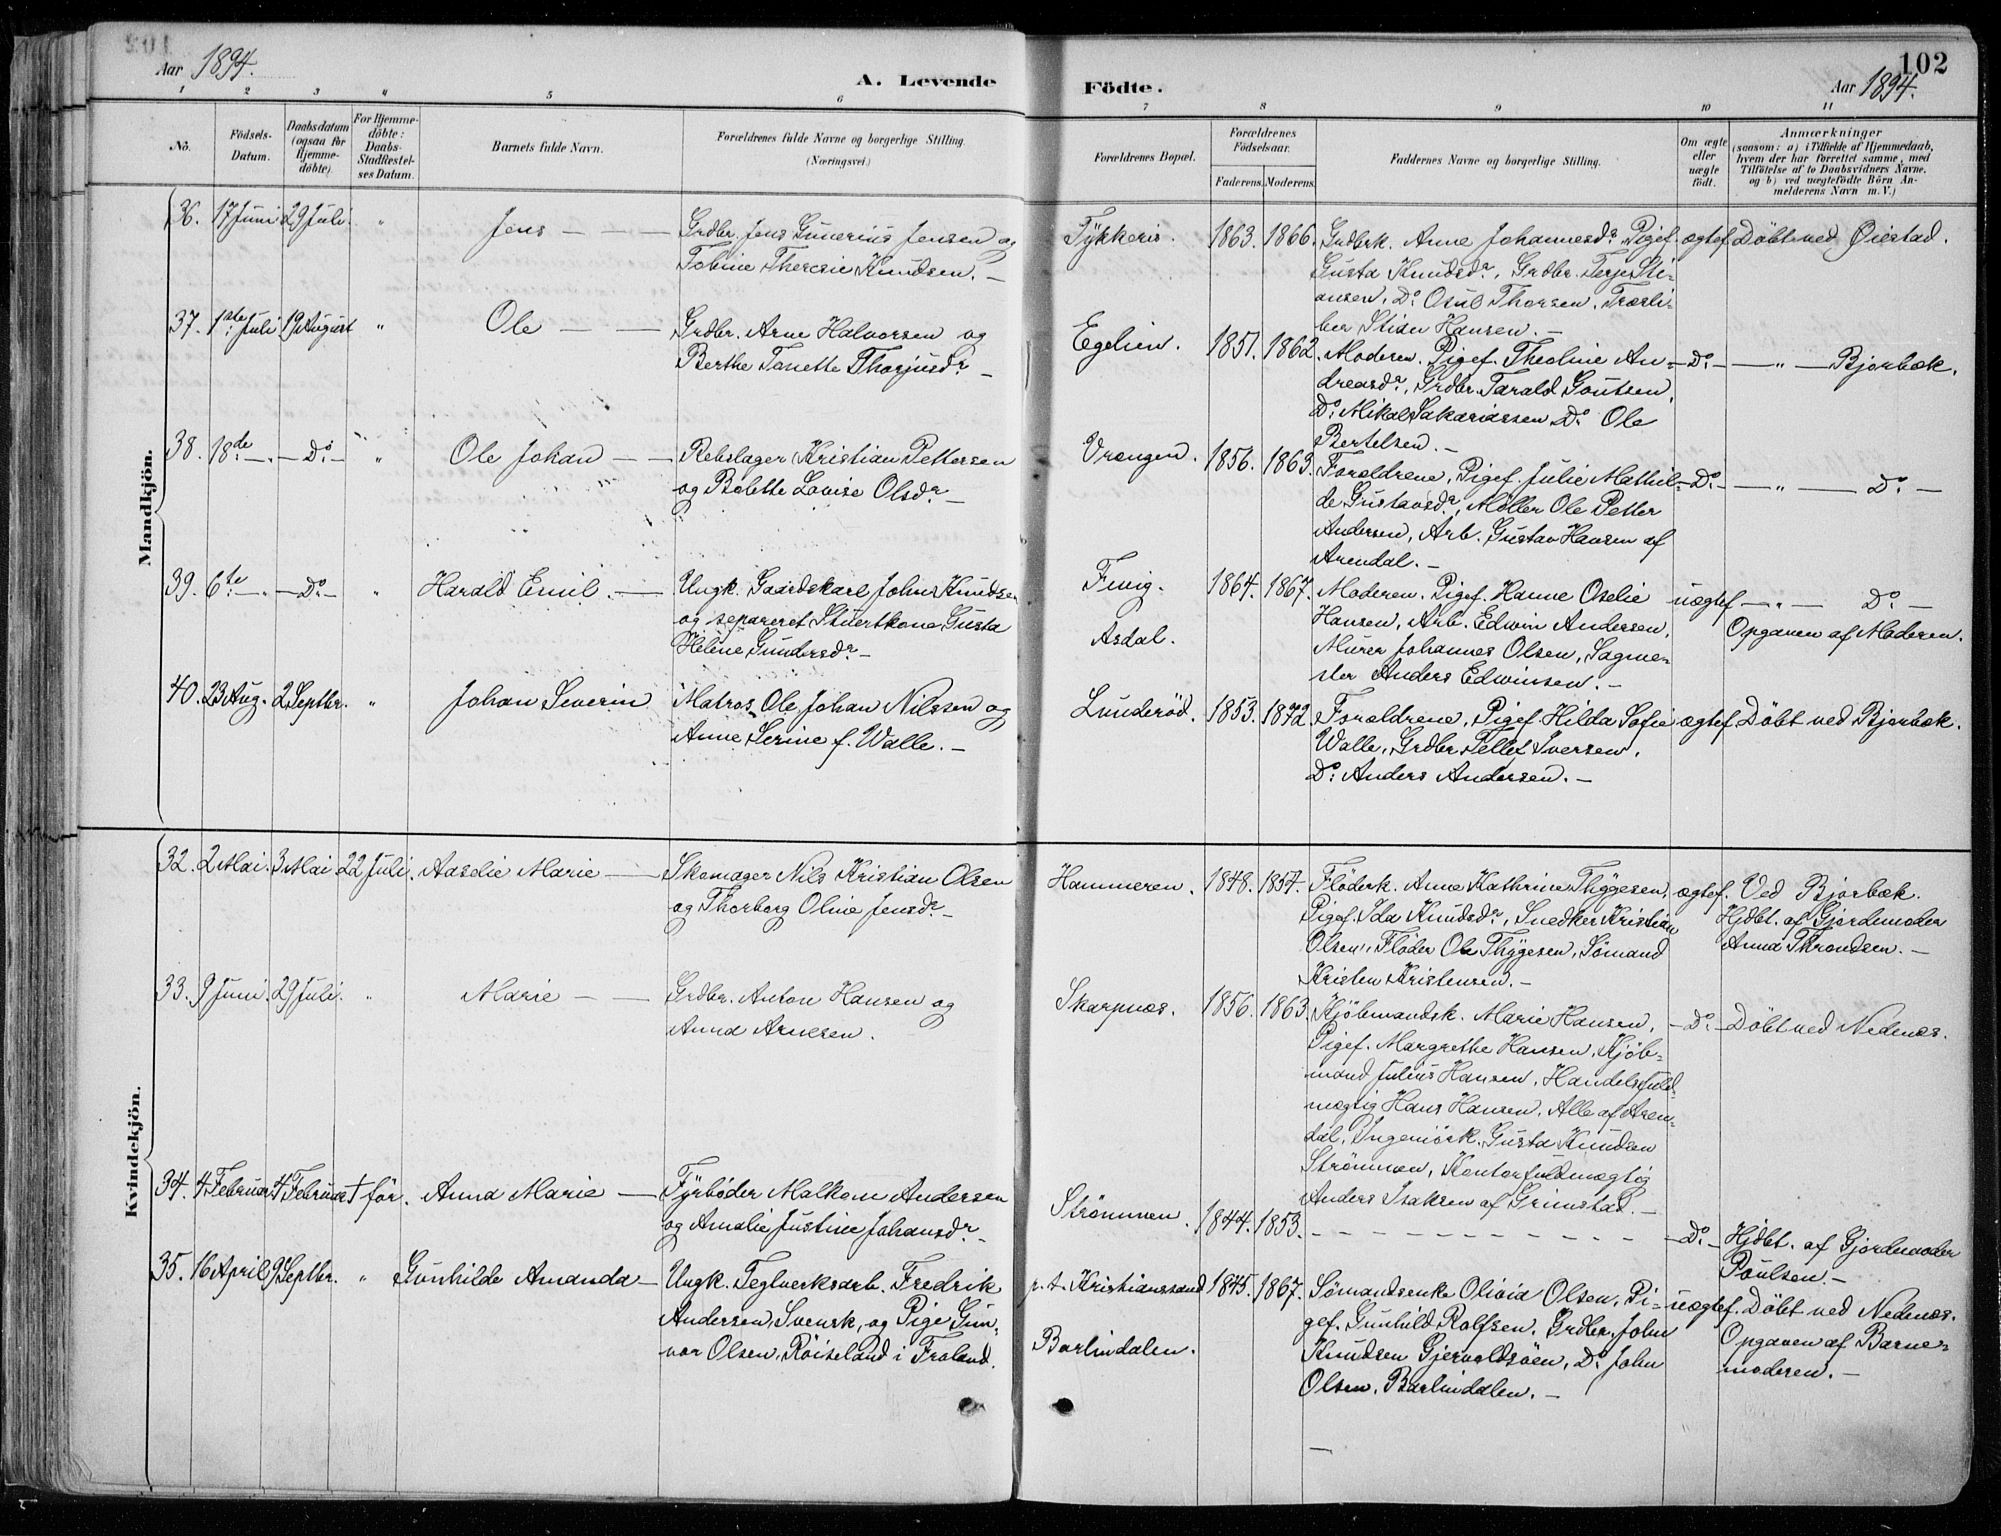 Aar 1894.
A. Levende
Födte.
102
Aar 1894.
1 2 3 4 5 6 7 8 9 10 11
No.
Födsels-
Datum.
Daabsdatum
(ogsaa for
Hjemme-
döbte).
For Hjemme-
döbte:
Daabs-
Stadfæstel-
ses Datum.
Barnets fulde Navn.
Forældrenes fulde Navne og borgerlige Stilling.
(Næringsvei.)
Forældrenes Bopæl.
Forældrenes
Födselsaar.
Faderens. Moderens.
Faddernes Navne og borgerlige Stilling.
Om ægte
eller
uægte
født.
Anmærkninger
(saasom: a) i Tilfælde af Hjemmedaab,
hvem der har forrettet samme, med
Tilföielse af to Daabsvidners Navne.
og b) ved uægtefödte Börn An-
melderens Navn m. V.)
Mandkjön.
36. 17 Juni 29 Juli. " Jens — —
Grdbr. Jens Gunerius Jensen og
Tobine Therese Knudsen. —
Tykkeris. 1863. 1866.
Grdbrk. Anne Johannesdr. Pigef.
Gusta Knudsdr, Grdbr. Terje Sti-
ansen, Do Osul Thorsen,
Stian Hansen. —
ægtef. Döbt ved Øiestad.
37. 1ste Juli 19 August " Ole — —
Grdbr. Arne Halvorsen og
Berthe Tanette Thorjusdr —
Egelien. 1851. 1862.
Moderen. Pigef. Theoline An-
dreasdr, Grdbr. Tarald Goutsen,
Do Mikal Sakariassen Do Ole
Bertelsen. —
— Do — — " — Bjorbæk.
38. 18de — " — Do — " Ole Johan — —
Rebslager Kristian Pettersen
og Bolette Lovise Olsdr —
Vrengen. 1856. 1863.
Forældrene, Pigef. Julie Mathil-
de Gustavsdr, Møller Ole Petter
Andersen, Arb. Gustav Hansen af
Arendal. —
— Do — — " — Do —
39. 6te — " — Do — " Harald Emil. —
Ungk. Gaardskarl Johns Knudsen
og separeret Stuertkone Gusta
Helene Gundersdr —
Fevig.
Asdal.
1864. 1867.
Moderen. Pigef. Hanne Oselie
Hansen, Arb. Edwin Andersen,
Murer Johannes Olsen, Sagme-
ster Anders Edwinsen. —
uægtef — " — Do —
Opgaven af Moderen.
40. 23 Aug. 2 Septbr. " Johan Severin
Matros Ole Johan Nilssen og
Anne Serine f. Walle. —
Lunderöd. 1853. 1872.
Forældrene, Pigef Hilda Sofie
Walle, Grdbr. Tellef Iversen,
Do Anders Andersen. —
ægtef. Döbt ved Bjorbæk.
Kvindekjön.
32. 2 Mai. 3 Mai 22 Juli. Aaselie Marie —
Skomager Nils Kristian Olsen
og Thorborg Oline Jensdr —
Hammeren. 1848. 1857.
Flöderk. Anne Kathrine Thygesen,
Pigef. Ida Knudsdr, Snedker Kristian
Olsen, Flöder Ole Thygesen, Sömand
Kristen Kristensen. —
ægtef. Ved Bjorbæk.
Hjdbt. af Gjordemoder
Anna Throndsen. —
33. 9 Juni. 29 Juli. " Marie — —
Grdbr. Anton Hansen og
Anna Arnesen.
Skarpnæs. 1856. 1863.
Kjöbmandsk. Marie Hansen,
Pigef. Margrethe Hansen, Kjöb-
mand Julius Hansen, Handelsfuld-
mægtig Hans Hansen, Alle af Aren-
dal, Ingeniörk. Gusta Knudsen
Strömmen, Kontorfuldmægtig
Anders Isaksen af Grimstad. —
— Do — Döbt ved Nedenæs.
34. 4 Februar 4 Februar † för. Anna Marie —
Fyrböder Malkom Andersen
og Amalie Justine Johansdr —
Strömmen. 1844. 1853. — — — — —
— Do — Hjdbt. af Gjordemoder
Poulsen. —
35. 16 April 9 Septbr. " Gunhilde Amanda —
Ungk. Teglverksarb. Fredrik
Andersen, Svensk, og Pige Gun-
vor Olsen, Röiseland i Froland.
p. t. Kristianssand
Barlindalen.
1845. 1867.
Sömandsenke Olivia Olsen, Pi-
gef. Gunhild Rolfsen. Grdbr. John
Knudsen Gjervoldsöen, Do John
Olsen, Barlindalen. —
uægtef. Döbt ved Nedenæs.
Opgaven af Barne-
moderen. —